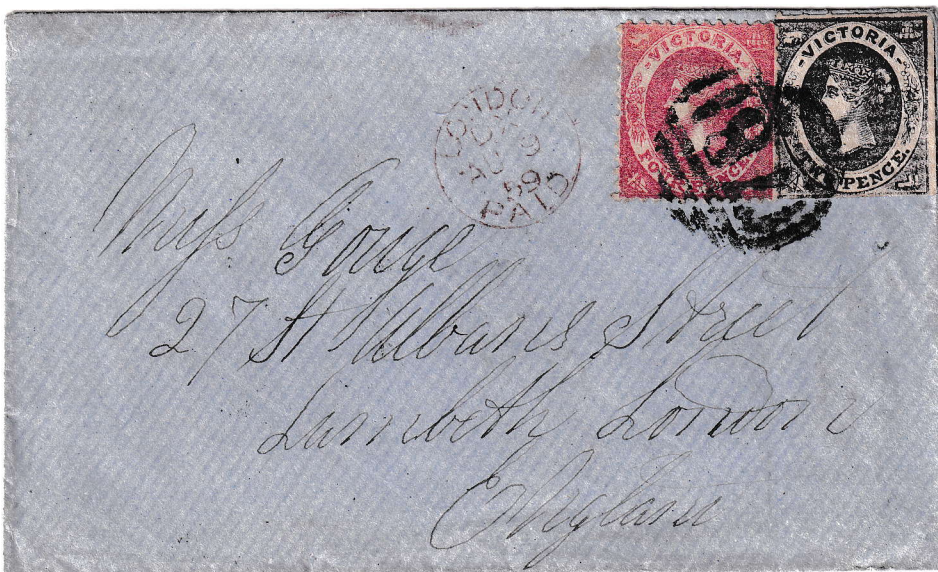 VICTORIA
FOUR PENCE
VICTORIA
PENCE.
LONDON
AU 9
59
PAID
Miss Gouge
27 St Albans Street
Lambeth London
England